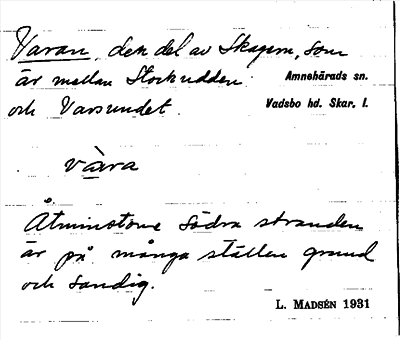 Varan, den del av Skagern, som
är mellan Storkudden Amnehärads sn.
och Varsundet. Vadsbo hd. Skar. l.
våra
Åtminstone södra stranden
är på många ställen grund
och sandig.
L. MADSÉN 1931